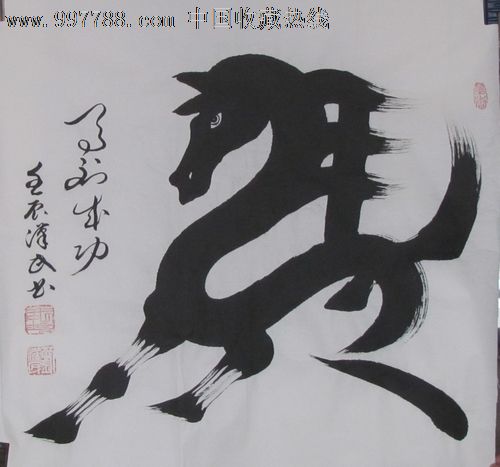 www.997788.com 中国收藏热线
马到成功
壬辰漢民书